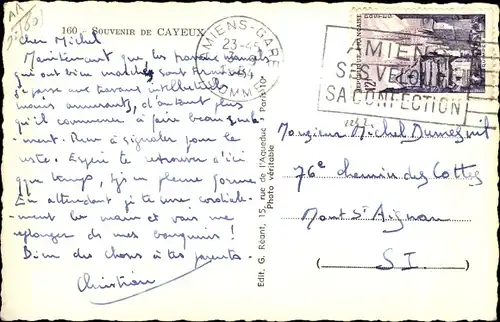 160 - SOUVENIR DE CAYEUX
Cher Michel
Maintenant que les travaux manuels
qui ont bien marchés, sont terminés
je passe aux travaux intellectuels
moins amusants, d'autant plus
qu'il commence à faire beau
ment. Rien à signaler pour le
reste. Espère te retrouver d'ici
que temps, en pleine forme
En attendant je te serre cordiale-
ment la main et vais me
replonger ds mes bouquins!
Bien des choses à tes parents.
Christian
Edit. G. Réant, 15, rue de l'Aqueduc - Paris-10e
Photo véritable
AMIENS-GARE
23-45
SOMME
REPUBLIQUE FRANÇAISE
12F
AMIENS
SES VELOURS
SA CONFECTION
Monsieur Michel Dumesnil
76e chemin des Cottes
Mont St Aignan
(S.I.)